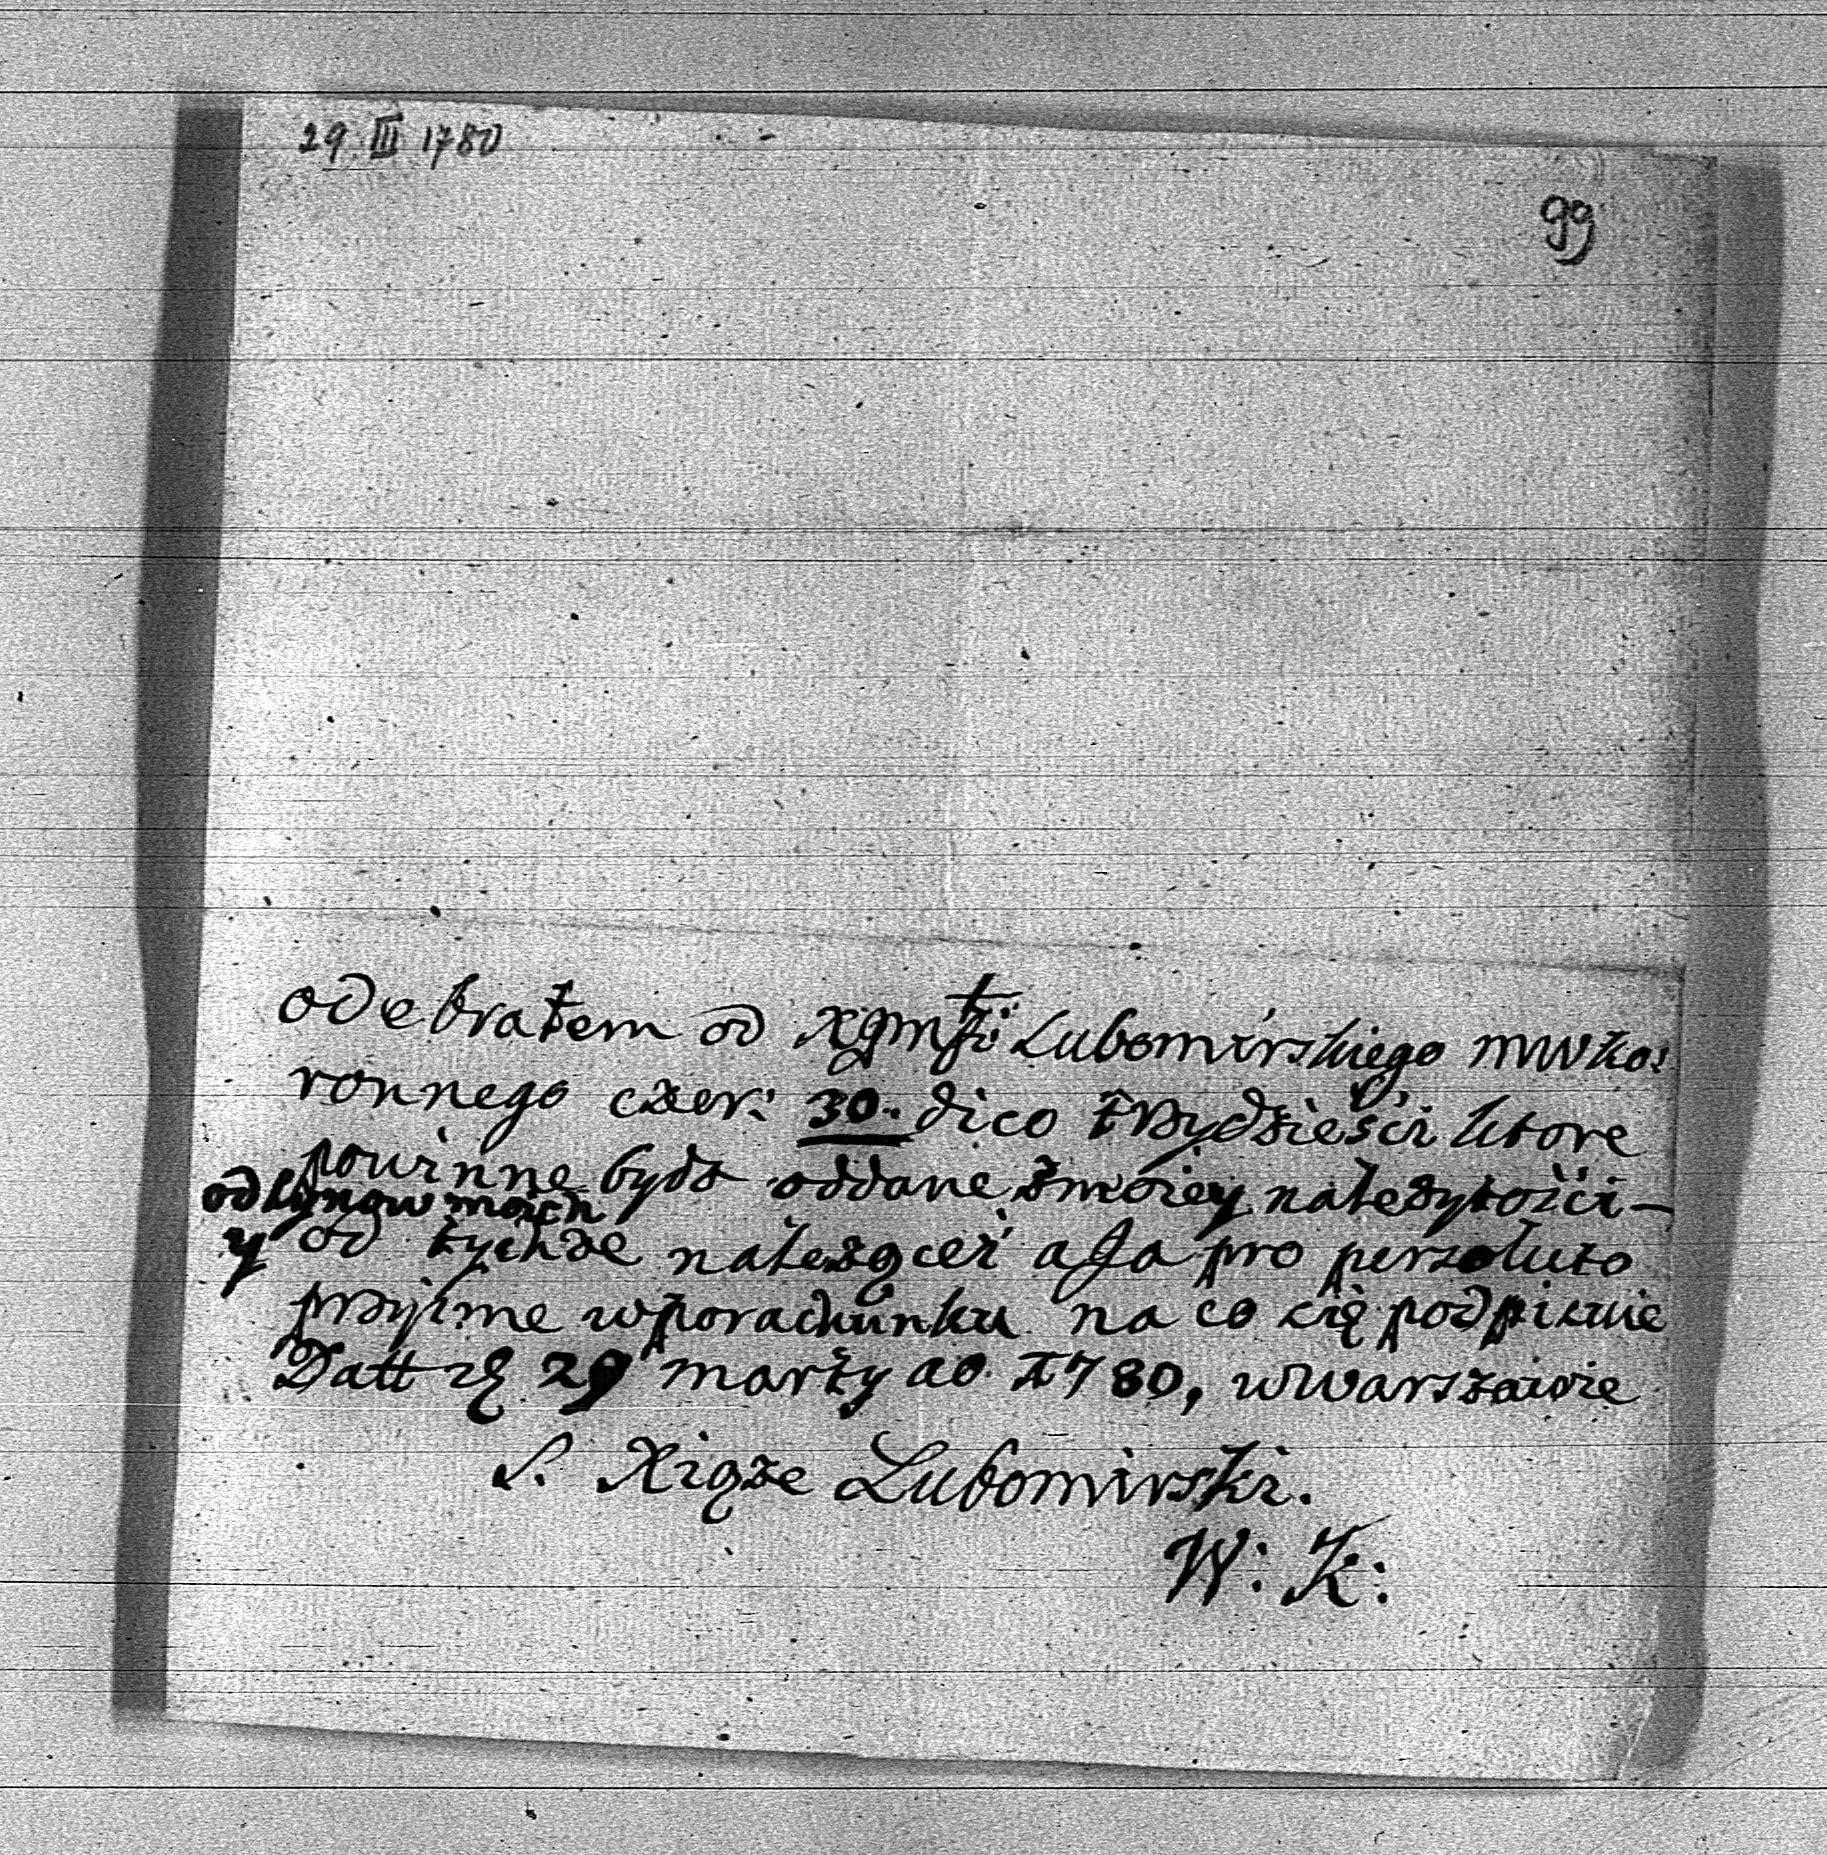 29 III 1780
99
odebrałem od Xgmsti Lubomirskiego MWKo:
ronnego czer: 30.. dico trzydzieści ktore
powinne bydz oddane zmoiey należytości —
od synow moich
y od tychze należącei a Ja pro persoluto
przyime wporachunku na co się podpisuie
Datt 29 marty ao 1780, wWarszawie
S. Xiąze Lubomirski.
W: K: